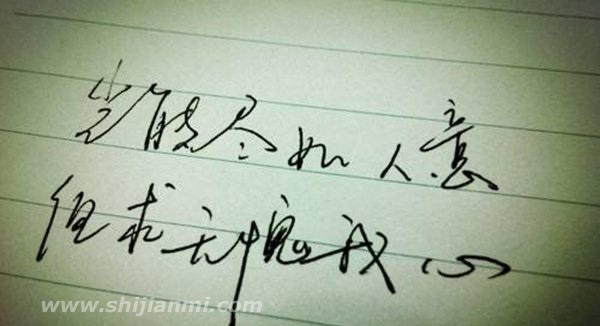 岂能尽如人意
但求无愧我心
www.shijianmi.com